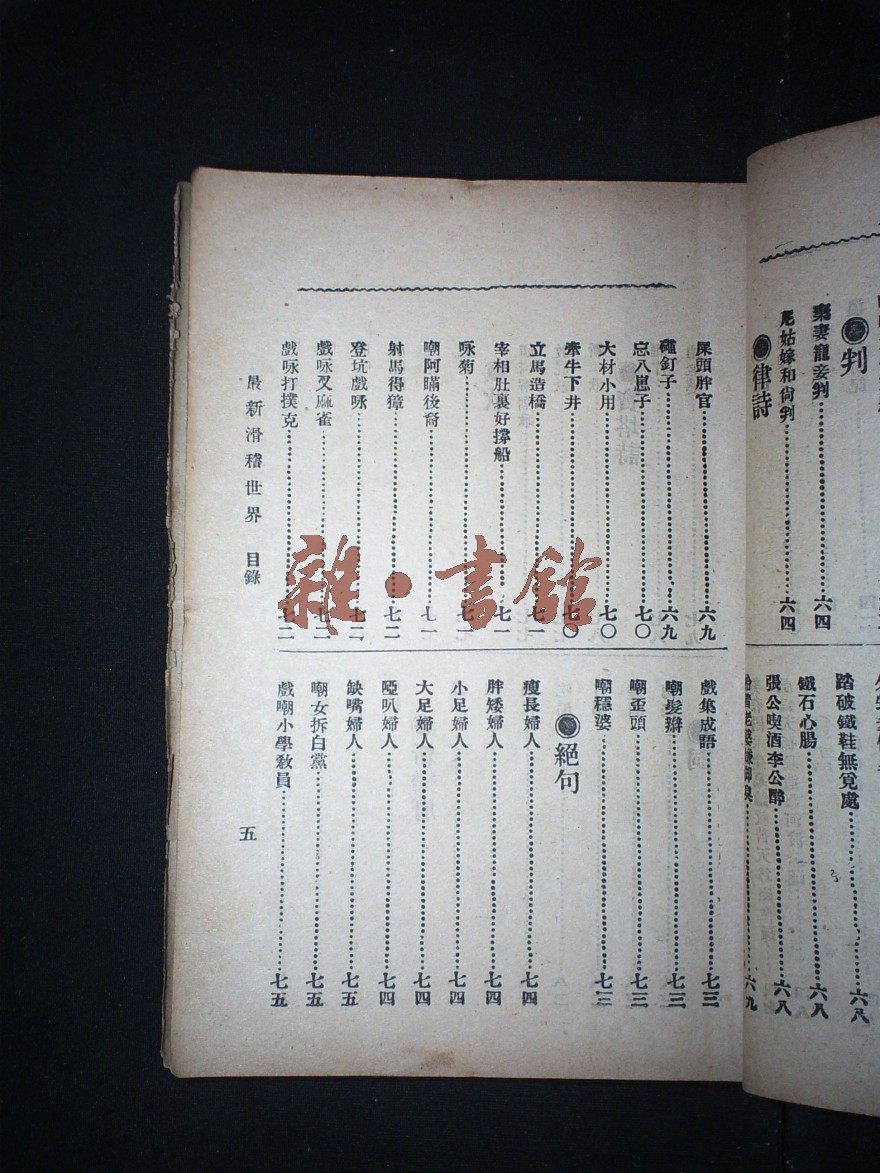 ●判
棄妻寵妾判……六四
尼姑嫁和尙判……六四
●律詩
踏破鐵鞋無覓處……六八
鐵石心腸……六八
張公喫酒李公醉……六八
屎頭胖官……六九
碰釘子……六九
忘八崽子……七〇
大材小用……七〇
牽牛下井……七〇
立馬造橋……七一
宰相肚裏好撐船……七一
咏菊……七一
嘲阿瞞後裔……七一
射馬得獐……七二
登坑戲咏……七二
戲咏叉麻雀……七二
戲咏打撲克……七二
戲集成語……七三
嘲髮辮……七三
嘲歪頭……七三
嘲穩婆……七三
●絕句
瘦長婦人……七四
胖矮婦人……七四
小足婦人……七四
大足婦人……七四
啞叭婦人……七四
缺嘴婦人……七五
嘲女拆白黨……七五
戲嘲小學敎員……七五
最新滑稽世界 目錄 五
雜·書館